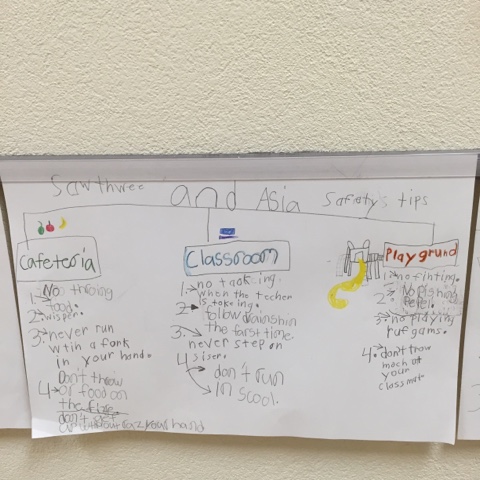 and Asia Safiaty's tips
Cafeteria
1. No throing
food.
2. wisper.
3. never run
wtih a fork
in your hand.
4 Don't throw
or food on
the
don't
your hand
Classroom
1. no tacking
when the techer
is takeing.
2 follow
the farst time.
3. never step on
4
don't run
in scool.
Playgrund
1. no fihting.
2. No pishing
Pepel.
3. no playing
ruf gams.
4. don't trow
moch at
your
classmat